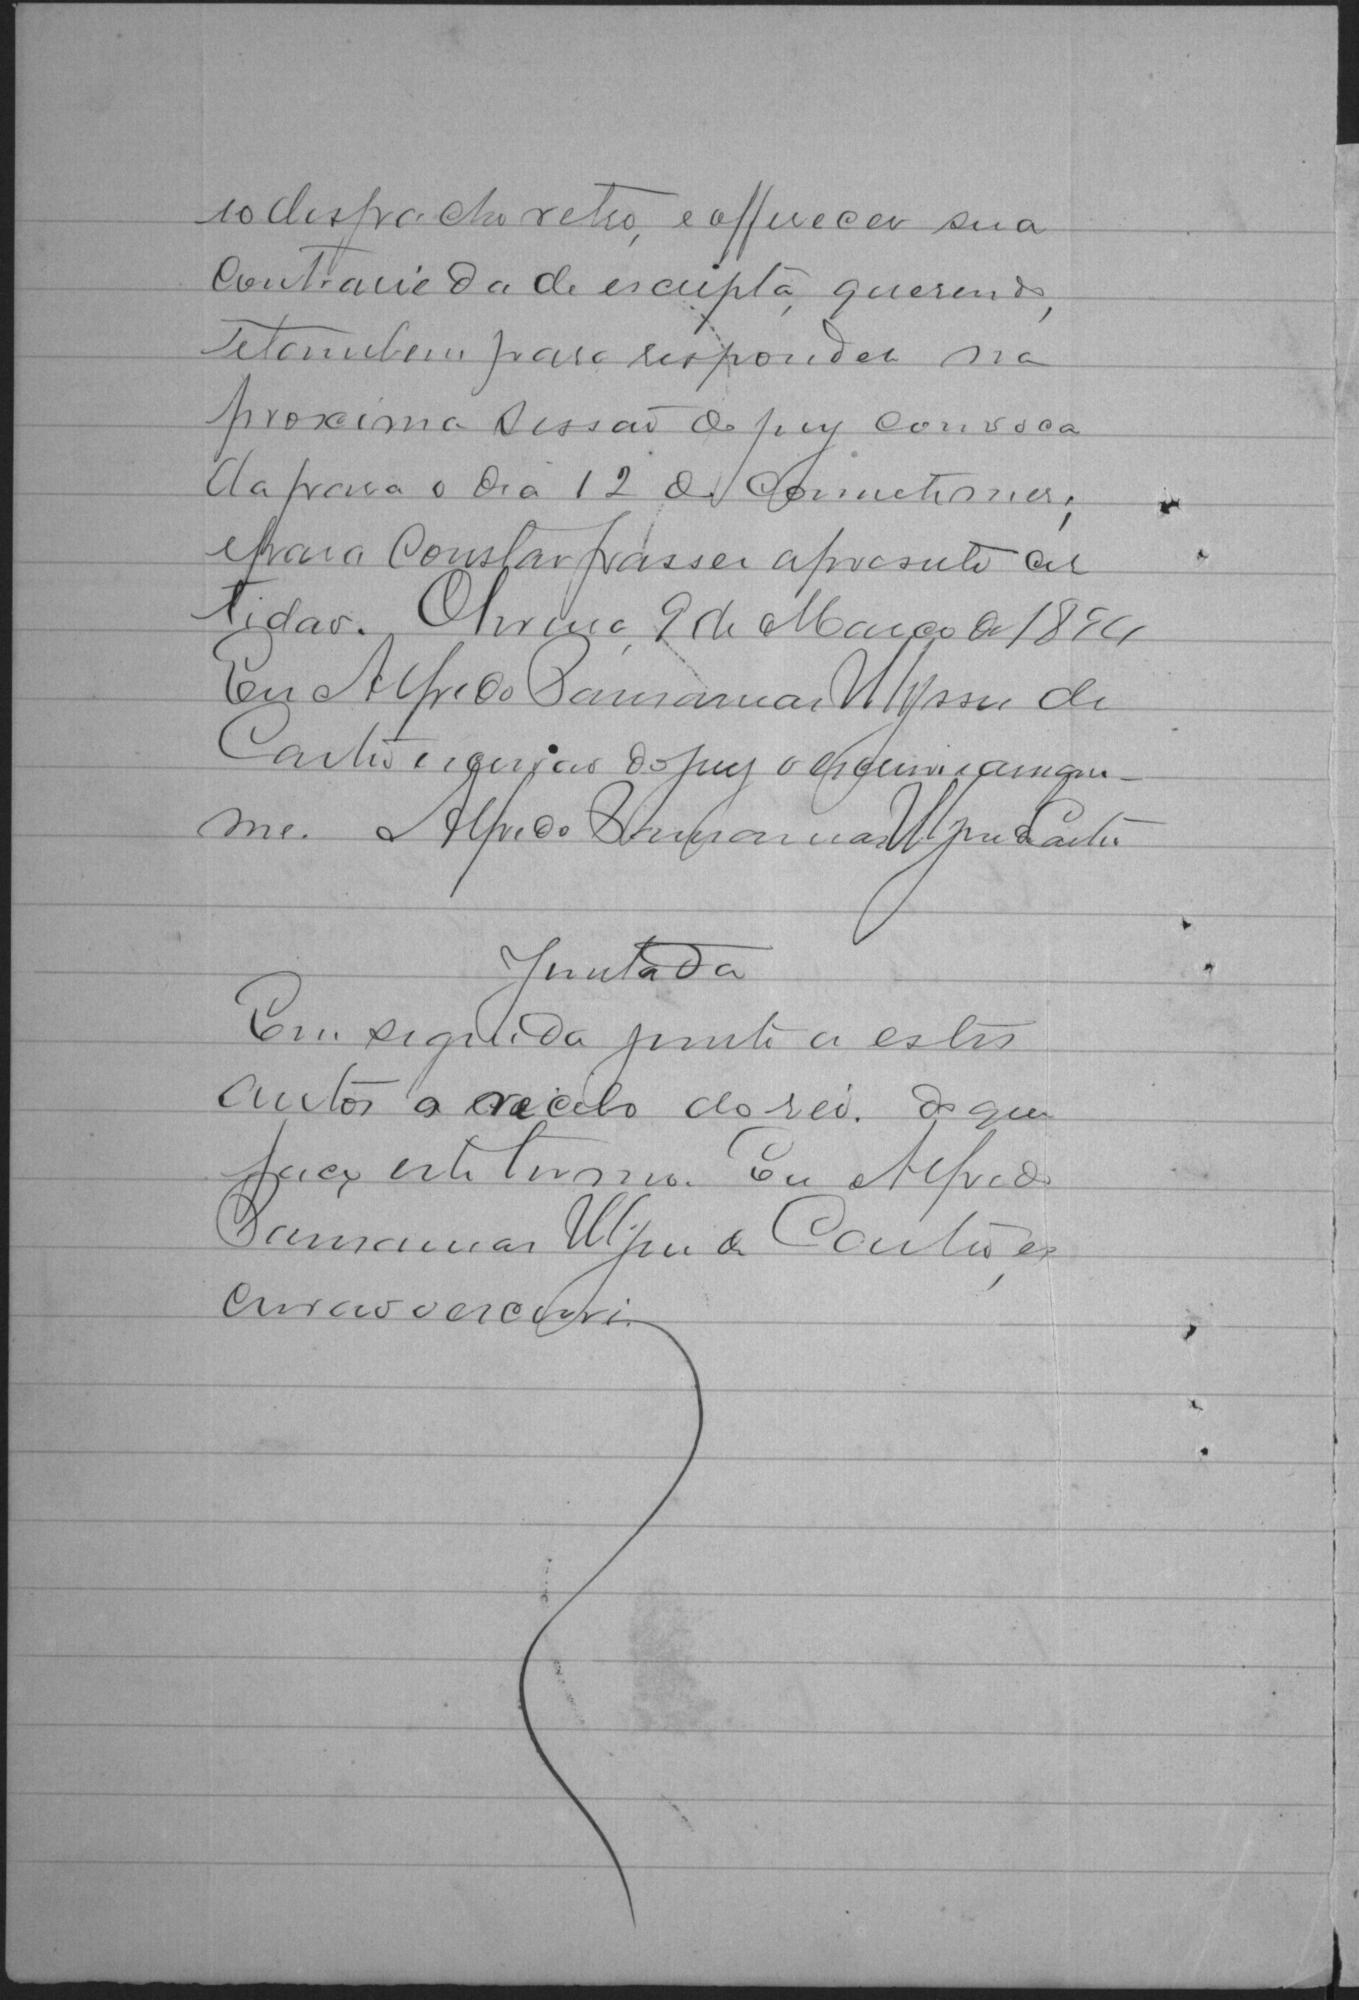 so despacho retro, e offerecer sua
contrariedade escripta, querendo,
e tambem para responder na
proxima sessão do jury convoca
da para o dia 12 do corrente mez;
e para constar passei a presente cer
tidão. 9 de Março de 1894
Eu Alfredo Ulysses de
Castro escrivão do jury o escrevi e assigno-
me. Alfredo Ulysses de Castro
Juntada
Em seguida junto a estes
autos o recibo do réo. do que
faço este termo. Eu Alfredo
Ulysses de Castro, es
crivão o escrevi.